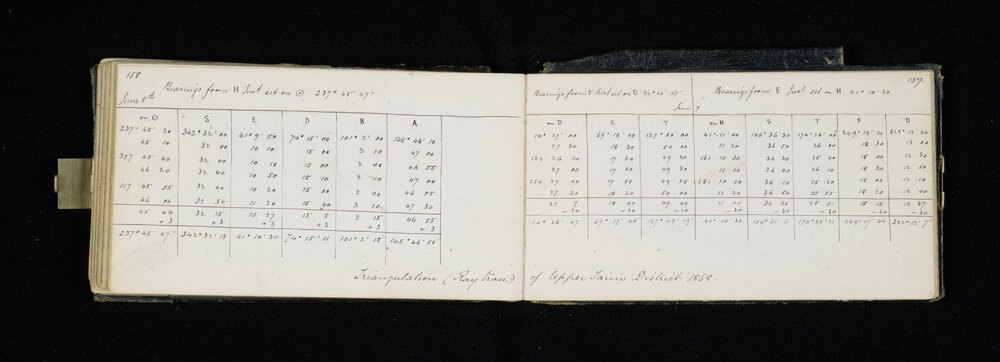 158
Bearings from H Inst set on ⊙ 237° 45' 47"
June 8th
on ⊙ S E D B A
237° 45' 20 342° 32' 00 41° 9' 50 74° 15' 00 101° 2' 00 145° 46' 10
45 10 32 00 10 10 15 00 2 10 47 00
357 45 40 32 00 10 10 15 00 2 00 46 55
46 20 32 40 10 50 15 10 2 10 47 00
117 45 55 32 00 10 20 15 00 2 00 46 55
46 00 32 50 11 20 15 40 3 10 47 30
45 44 32 15 10 27 15 8 2 15 46 55
+3 +3 +3 +3 +3
237° 45' 47" 342° 32' 18 41° 10' 30 74° 15' 11 101° 2' 18 145° 46' 58
Triangulation (Ray trace)
159
Bearings from F Inst set on D 74° 47
Bearings from E Inst set on H 41° 10 30
June 9
on D E T on H S T F D
14° 27' 00 69° 18' 00 127° 50' 00 41° 11' 00 106° 36' 30 174° 26' 00 249° 18' 10 322° 12' 30
27 30 18 30 50 00 11 20 36 50 26 00 18 30 13 00
134 26 40 17 30 49 20 161 10 30 36 30 25 40 18 00 12 30
27 00 17 50 49 30 11 00 36 40 26 10 18 30 12 50
254 27 00 17 50 49 281 10 50 36 10 25 20 18 00 12 10
27 30 18 20 50 00 11 20 36 50 25 18 20 12 40
27 7 18 00 11 00 36 35 25 51 18 15 12 37
-20 -20 -20 -30 -30 -30 -30 -30
14° 26' 47 69° 17' 40 127° 49' 41° 10' 30 106° 36' 5 174° 25' 21 249° 17' 45 322° 12' 7"
of Upper Taieri District 1868.